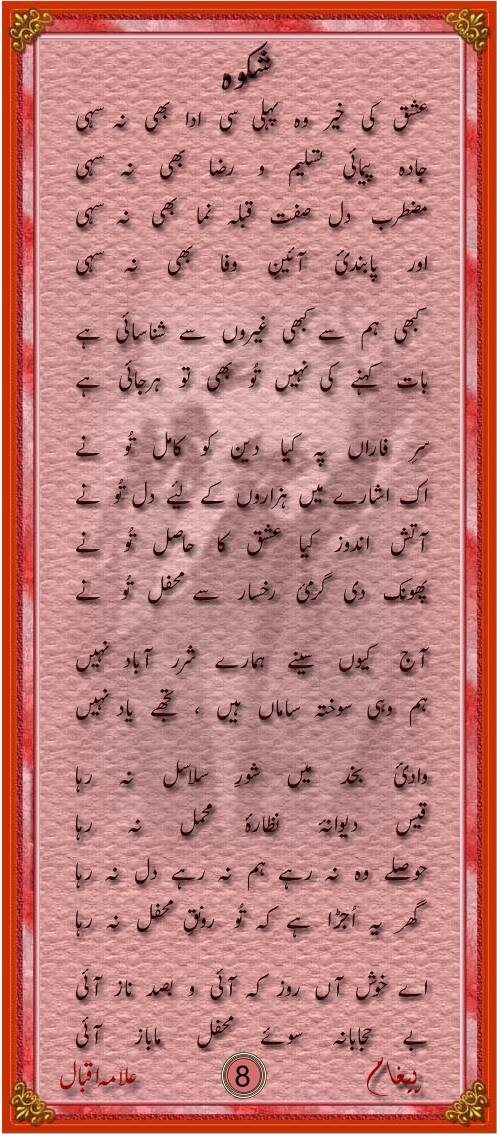 شکوہ
عشق کی خیر وہ پہلی سی ادا بھی نہ سہی
جادہ پیمائی تسلیم و رضا بھی نہ سہی
مضطرب دل صفت قبلہ نما بھی نہ سہی
اور پابندیٔ آئینِ وفا بھی نہ سہی
کبھی ہم سے کبھی غیروں سے شناسائی ہے
بات کہنے کی نہیں تُو بھی تو ہرجائی ہے
سرِ فاراں پہ کیا دین کو کامل تُو نے
اک اشارے میں ہزاروں کے لیٔے دل تُو نے
آتش اندوز کیا عشق کا حاصل تُو نے
پھونک دی گرمیٔ رخسار سے محفل تُو نے
آج کیوں سینے ہمارے شرر آباد نہیں
ہم وہی سوختہ ساماں ہیں ، تجھے یاد نہیں
وادیٔ نجد میں شورِ سلاسل نہ رہا
قیس دیوانۂ نظارۂ محمل نہ رہا
حوصلے وہ نہ رہے ہم نہ رہے دل نہ رہا
گھر یہ اُجڑا ہے کہ تُو رونقِ محفل نہ رہا
اے خوش آں روز کہ آئی و بصد ناز آئی
بے حجابانہ سوئے محفل ماباز آئی
پیغام
8
علامہ اقبال